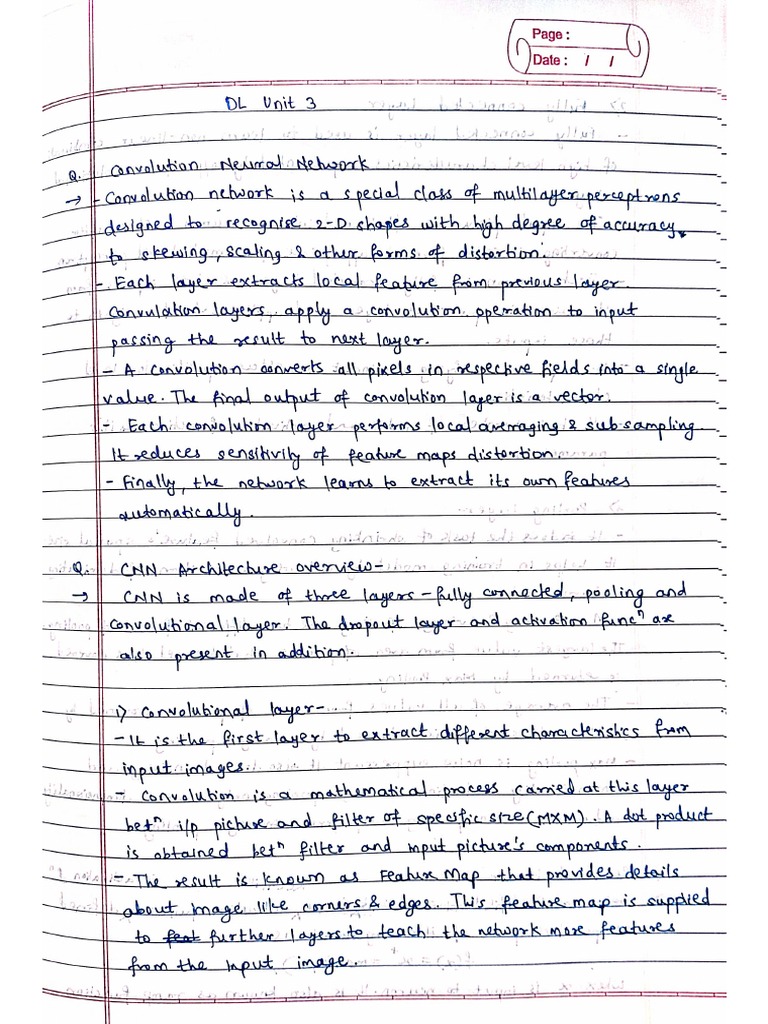 Page :
Date : / /
DL Unit 3
Q. Convolution Neural Network
→ - Convolution network is a special class of multilayer perceptrons
designed to recognise 2-D shapes with high degree of accuracy
to skewing, scaling & other forms of distortion.
- Each layer extracts local feature from previous layer.
Convulation layers, apply a convolution operation to input
passing the result to next layer.
- A convolution converts all pixels in respective fields into a single
value. The final output of convolution layer is a vector.
- Each convolution layer performs local averaging & sub sampling.
It reduces sensitivity of feature maps distortion.
- Finally, the network learns to extract its own features
automatically.
Q. CNN Architecture overview-
→ CNN is made of three layers - fully connected, pooling and
convolutional layer. The dropout layer and activation funcⁿ are
also present in addition.
1) Convolutional layer-
- It is the first layer to extract different characteristics from
input images.
- Convolution is a mathematical process carried at this layer
betⁿ i/p picture and filter of specific size (MXM). A dot product
is obtained betⁿ filter and input picture's components.
- The result is known as Feature Map that provides details
about image like corners & edges. This feature map is supplied
to feat further layers to teach the network more features
from the input image.